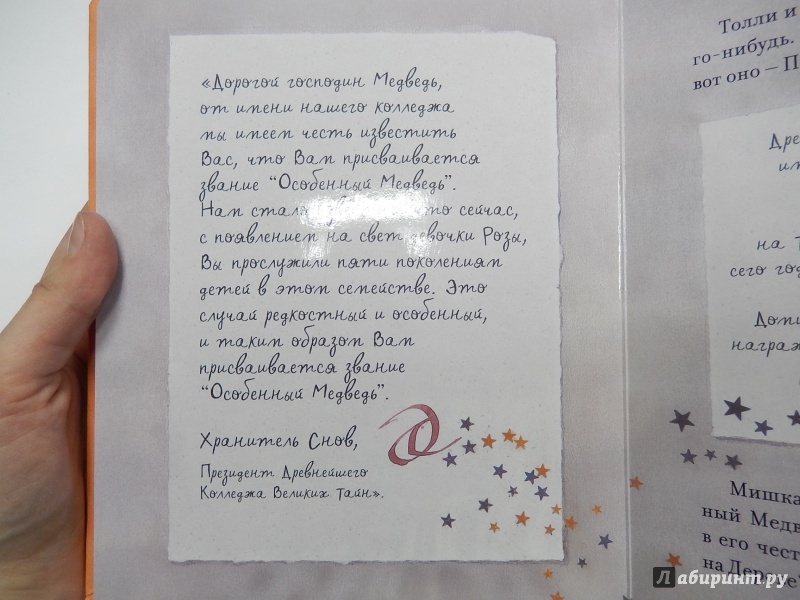 «Дорогой господин Медведь,
от имени нашего колледжа
мы имеем честь известить
Вас, что Вам присваивается
звание “Особенный Медведь”.
Нам стало сейчас,
с появлением на свет девочки Розы,
Вы прослужили пяти поколениям
детей в этом семействе. Это
случай редкостный и особенный,
и таким образом Вам
присваивается звание
“Особенный Медведь”.
Хранитель Снов,
Президент Древнейшего
Колледжа Великих Тайн».
Толли и
го-нибудь.
вот оно — П
Дре
им
на Т
сего год
Доми
награж
Мишка
ный Медв
в его чест
на Дерево
Лабиринт.ру